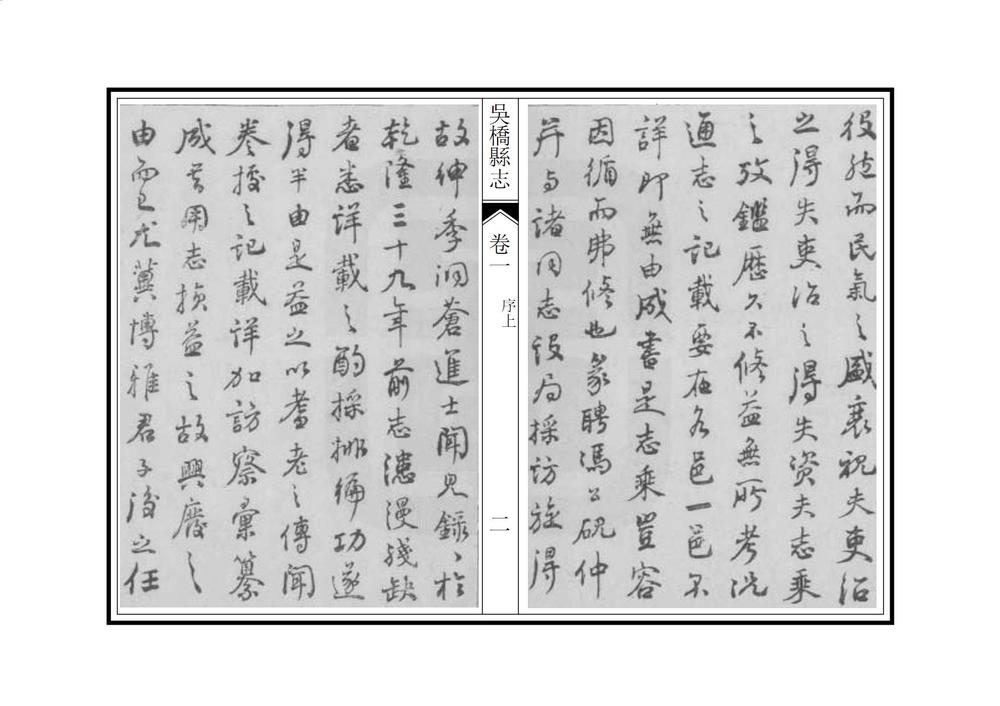 役然而民氣之盛衰視夫吏治
之得失吏治之得失资夫志乘
之攷鑑歷久不修益無所考况
通志之記載要在各邑一邑不
詳即無由成書是志乘豈容
因循而弗修也爰聘馮公砚仲
并与諸同志设局採访旋得
吳橋縣志
卷一
序上
二
故紳季洞蒼進士聞見錄、於
乾隆三十九年前志漶漫残缺
者悉詳載之酌採排编功遂
得半由是益之以耆老之傳聞
卷牍之記載详加訪察彙纂
成
用志損益之故興廢之
由而已尤冀博雅君子後之任